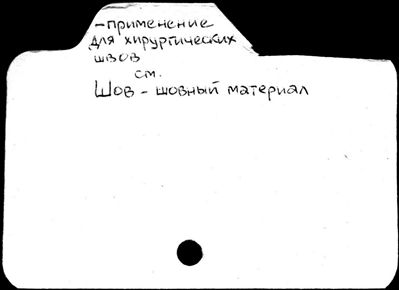 -применение
для хирургических
швов
см.
Шов - шовный материал